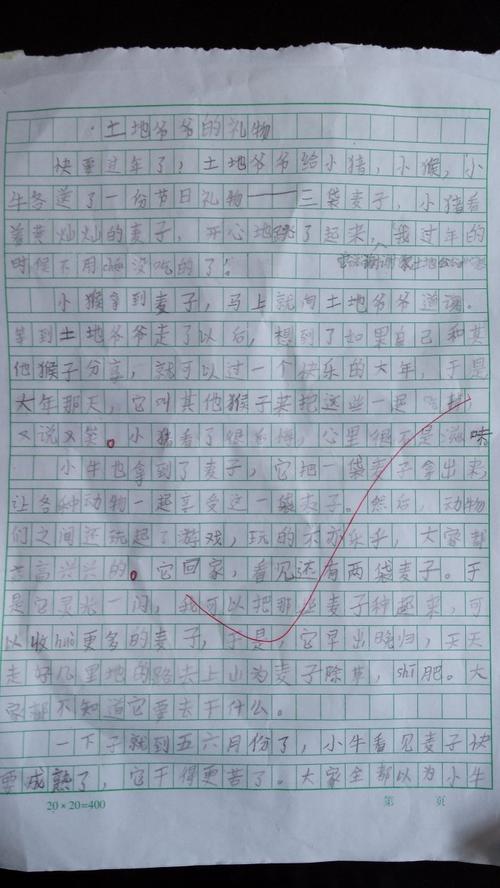 土地爷爷的礼物
快要过年了，土地爷爷给小猪，小猴，小
牛各送了一份节日礼物——三袋麦子，小猪看
着黄灿灿的麦子，开心地跳了起来，我过年的
时候不用chou没吃的了！
小猴拿到麦子，马上就向土地爷爷道谢。
等到土地爷爷走了以后，想到了如果自己和其
他猴子分享，就可以过一个快乐的大年，于是
大年那天，它叫其他猴子来把这些一起
又说又笑。小猪看了很后悔，心里很不是滋味
小牛也拿到了麦子，它把一袋麦子拿出来，
让各种动物一起享受这一袋麦子。然后，动物
们之间还玩起了游戏，玩的不亦乐乎，大家都
高高兴兴的。它回家，看见还有两袋麦子。于
是它灵光一闪，我可以把那些麦子种起来，可
以收huò更多的麦子，于是，它早出晚归，天天
走好几里地的路去上山为麦子除草，shī肥。大
家都不知道它要去干什么。
一下子就到五六月份了，小牛看见麦子快
要成熟了，它干得更苦了。大家全都以为小牛
20×20=400
第 页